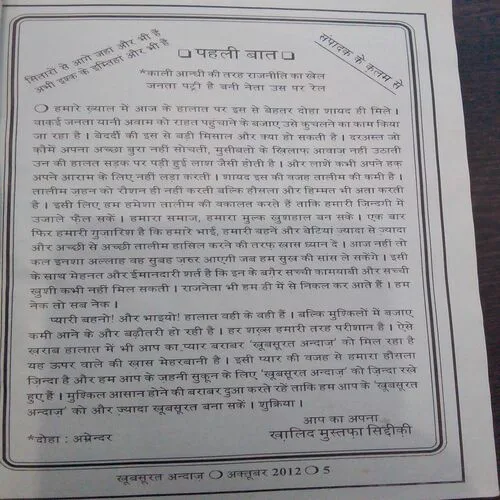 सितारों से आगे जहां और भी हैं
अभी इश्क के इम्तिहां और भी हैं
पहली बात
संपादक के क़लम से
*काली आन्धी की तरह राजनीति का खेल
जनता पट्री है बनी नेता उस पर रेल
हमारे ख्याल में आज के हालात पर इस से बेहतर दोहा शायद ही मिले।
वाकई जनता यानी अवाम को राहत पहुंचाने के बजाए उसे कुचलने का काम किया
जा रहा है। बेदर्दी की इस से बड़ी मिसाल और क्या हो सकती है। दरअस्ल जो
कौमें अपना अच्छा बुरा नहीं सोचती, मुसीबतों के खिलाफ आवाज नहीं उठाती
उन की हालत सड़क पर पड़ी हुई लाश जैसी होती है। और लाशें कभी अपने हक़
अपने आराम के लिए नहीं लड़ा करतीं। शायद इस की वजह तालीम की कमी है।
तालीम ज़हन को रौशन ही नहीं करती बल्कि हौसला और हिम्मत भी अता करती
है। इसी लिए हम हमेशा तालीम की वकालत करते हैं ताकि हमारी जिन्दगी में
उजाले फैल सकें। हमारा समाज, हमारा मुल्क खुशहाल बन सके। एक बार
फिर हमारी गुजारिश है कि हमारे भाई, हमारी बहनें और बेटियां ज्यादा से ज्यादा
और अच्छी से अच्छी तालीम हासिल करने की तरफ ख़ास ध्यान दें। आज नहीं तो
कल इनशा अल्लाह वह सुबह जरूर आएगी जब हम सुख की सांस ले सकेंगे। इसी
के साथ मेहनत और ईमानदारी शर्त है कि इन के बगैर सच्ची कामयाबी और सच्ची
खुशी कभी नहीं मिल सकती। राजनेता भी हम ही में से निकल कर आते हैं। हम
नेक तो सब नेक।
प्यारी बहनो! और भाइयो! हालात वही के वही हैं। बल्कि मुश्किलों में बजाए
कमी आने के और बढ़ौतरी हो रही है। हर शख्स हमारी तरह परीशान है। ऐसे
खराब हालात में भी आप का प्यार बराबर 'खूबसूरत अन्दाज़' को मिल रहा है
यह ऊपर वाले की ख़ास मेहरबानी है। इसी प्यार की वजह से हमारा हौसला
जिन्दा है और हम आप के जहनी सुकून के लिए 'खूबसूरत अन्दाज़' को ज़िन्दा रखे
हुए हैं। मुश्किल आसान होने की बराबर दुआ करते रहें ताकि हम आप के 'खूबसूरत
अन्दाज़' को और ज़्यादा खूबसूरत बना सकें। शुक्रिया।
आप का अपना
*दोहा : अम्रेन्दर
ख़ालिद मुस्तफ़ा सिद्दीकी
खूबसूरत अन्दाज़ ❍ अक्तूबर 2012 ❍ 5